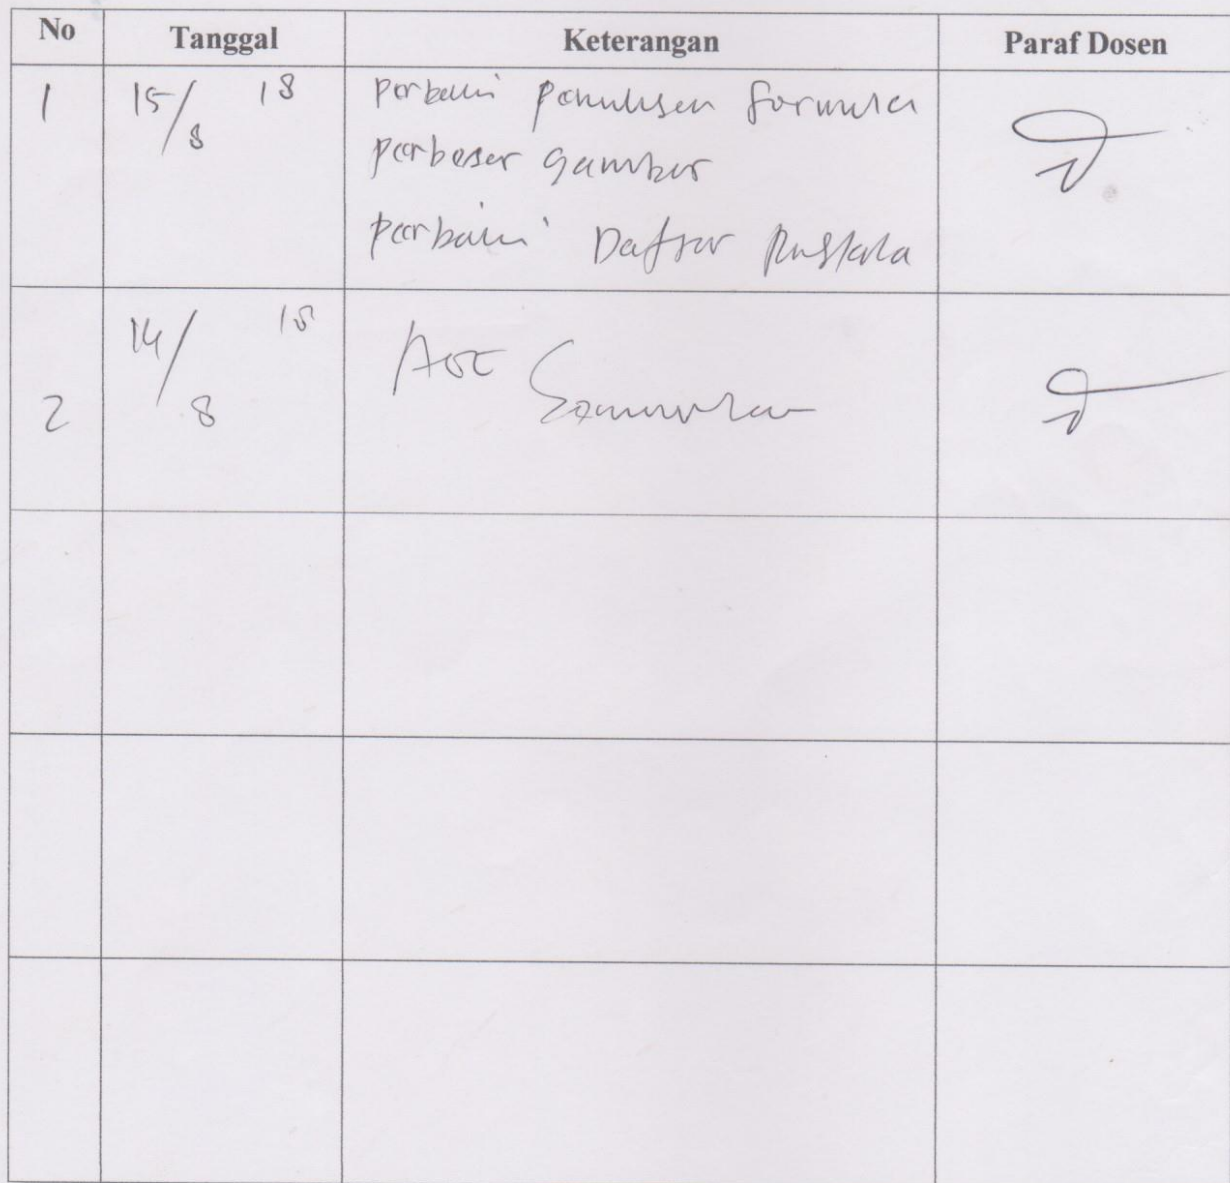 No Tanggal Keterangan Paraf Dosen
1 15/8 18 perbaiki penulisan formula
perbesar gambar
perbaiki Daftar Pustaka
2 14/8 18 Acc